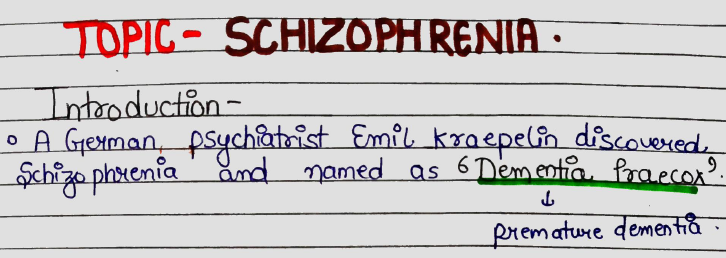 TOPIC- SCHIZOPHRENIA.
Introduction-
∘ A German psychiatrist Emil kraepelin discovered
Schizophrenia and named as 'Dementia Praecox'.
↓
premature dementia.